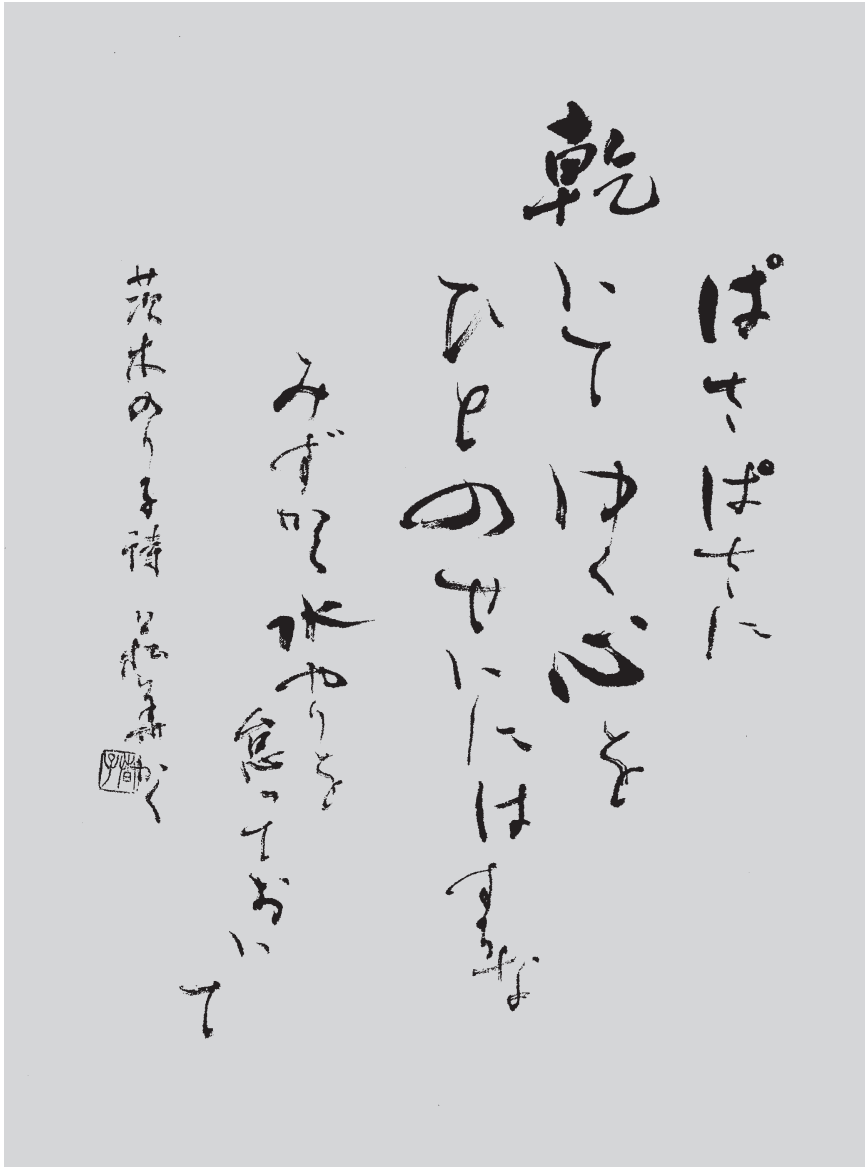 ぱさぱさに
乾いてゆく心を
ひとのせいにはするな
みずから水やりを
怠っておいて
茨木のり子詩 かく